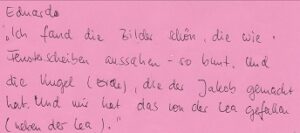 Eduardo
"Ich fand die Bilder schön, die wie
Fensterscheiben aussahen - so bunt. Und
die Kugel (Erde), die der Jakob gemacht
hat. Und mir hat das von der Lea gefallen
(neben der Lea)."